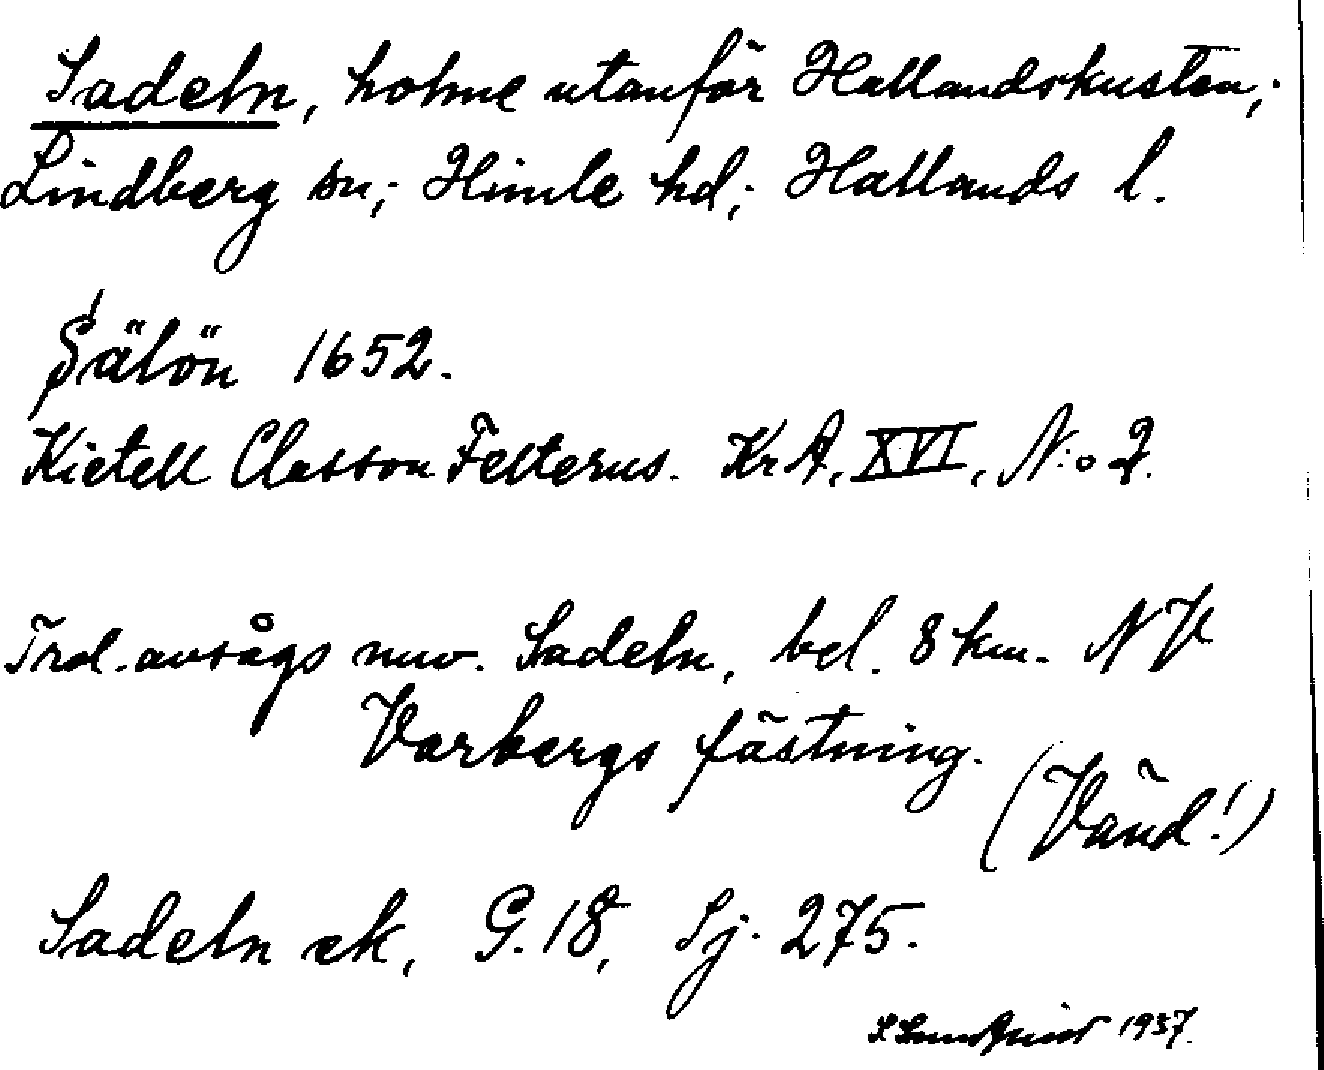 Sadeln, holme utanför Hallandskusten,;
Lindberg sn,; Himle hd,; Hallands l.
Sälön 1652.
Kietell Classon Felterus. Kr A, XVI, N:o 2.
Trol. avsågs nuv. Sadeln, bel. 8 km. NV
Varbergs fästning.
(Vänd!)
Sadeln ek, G. 18, Sj. 275.
1937.